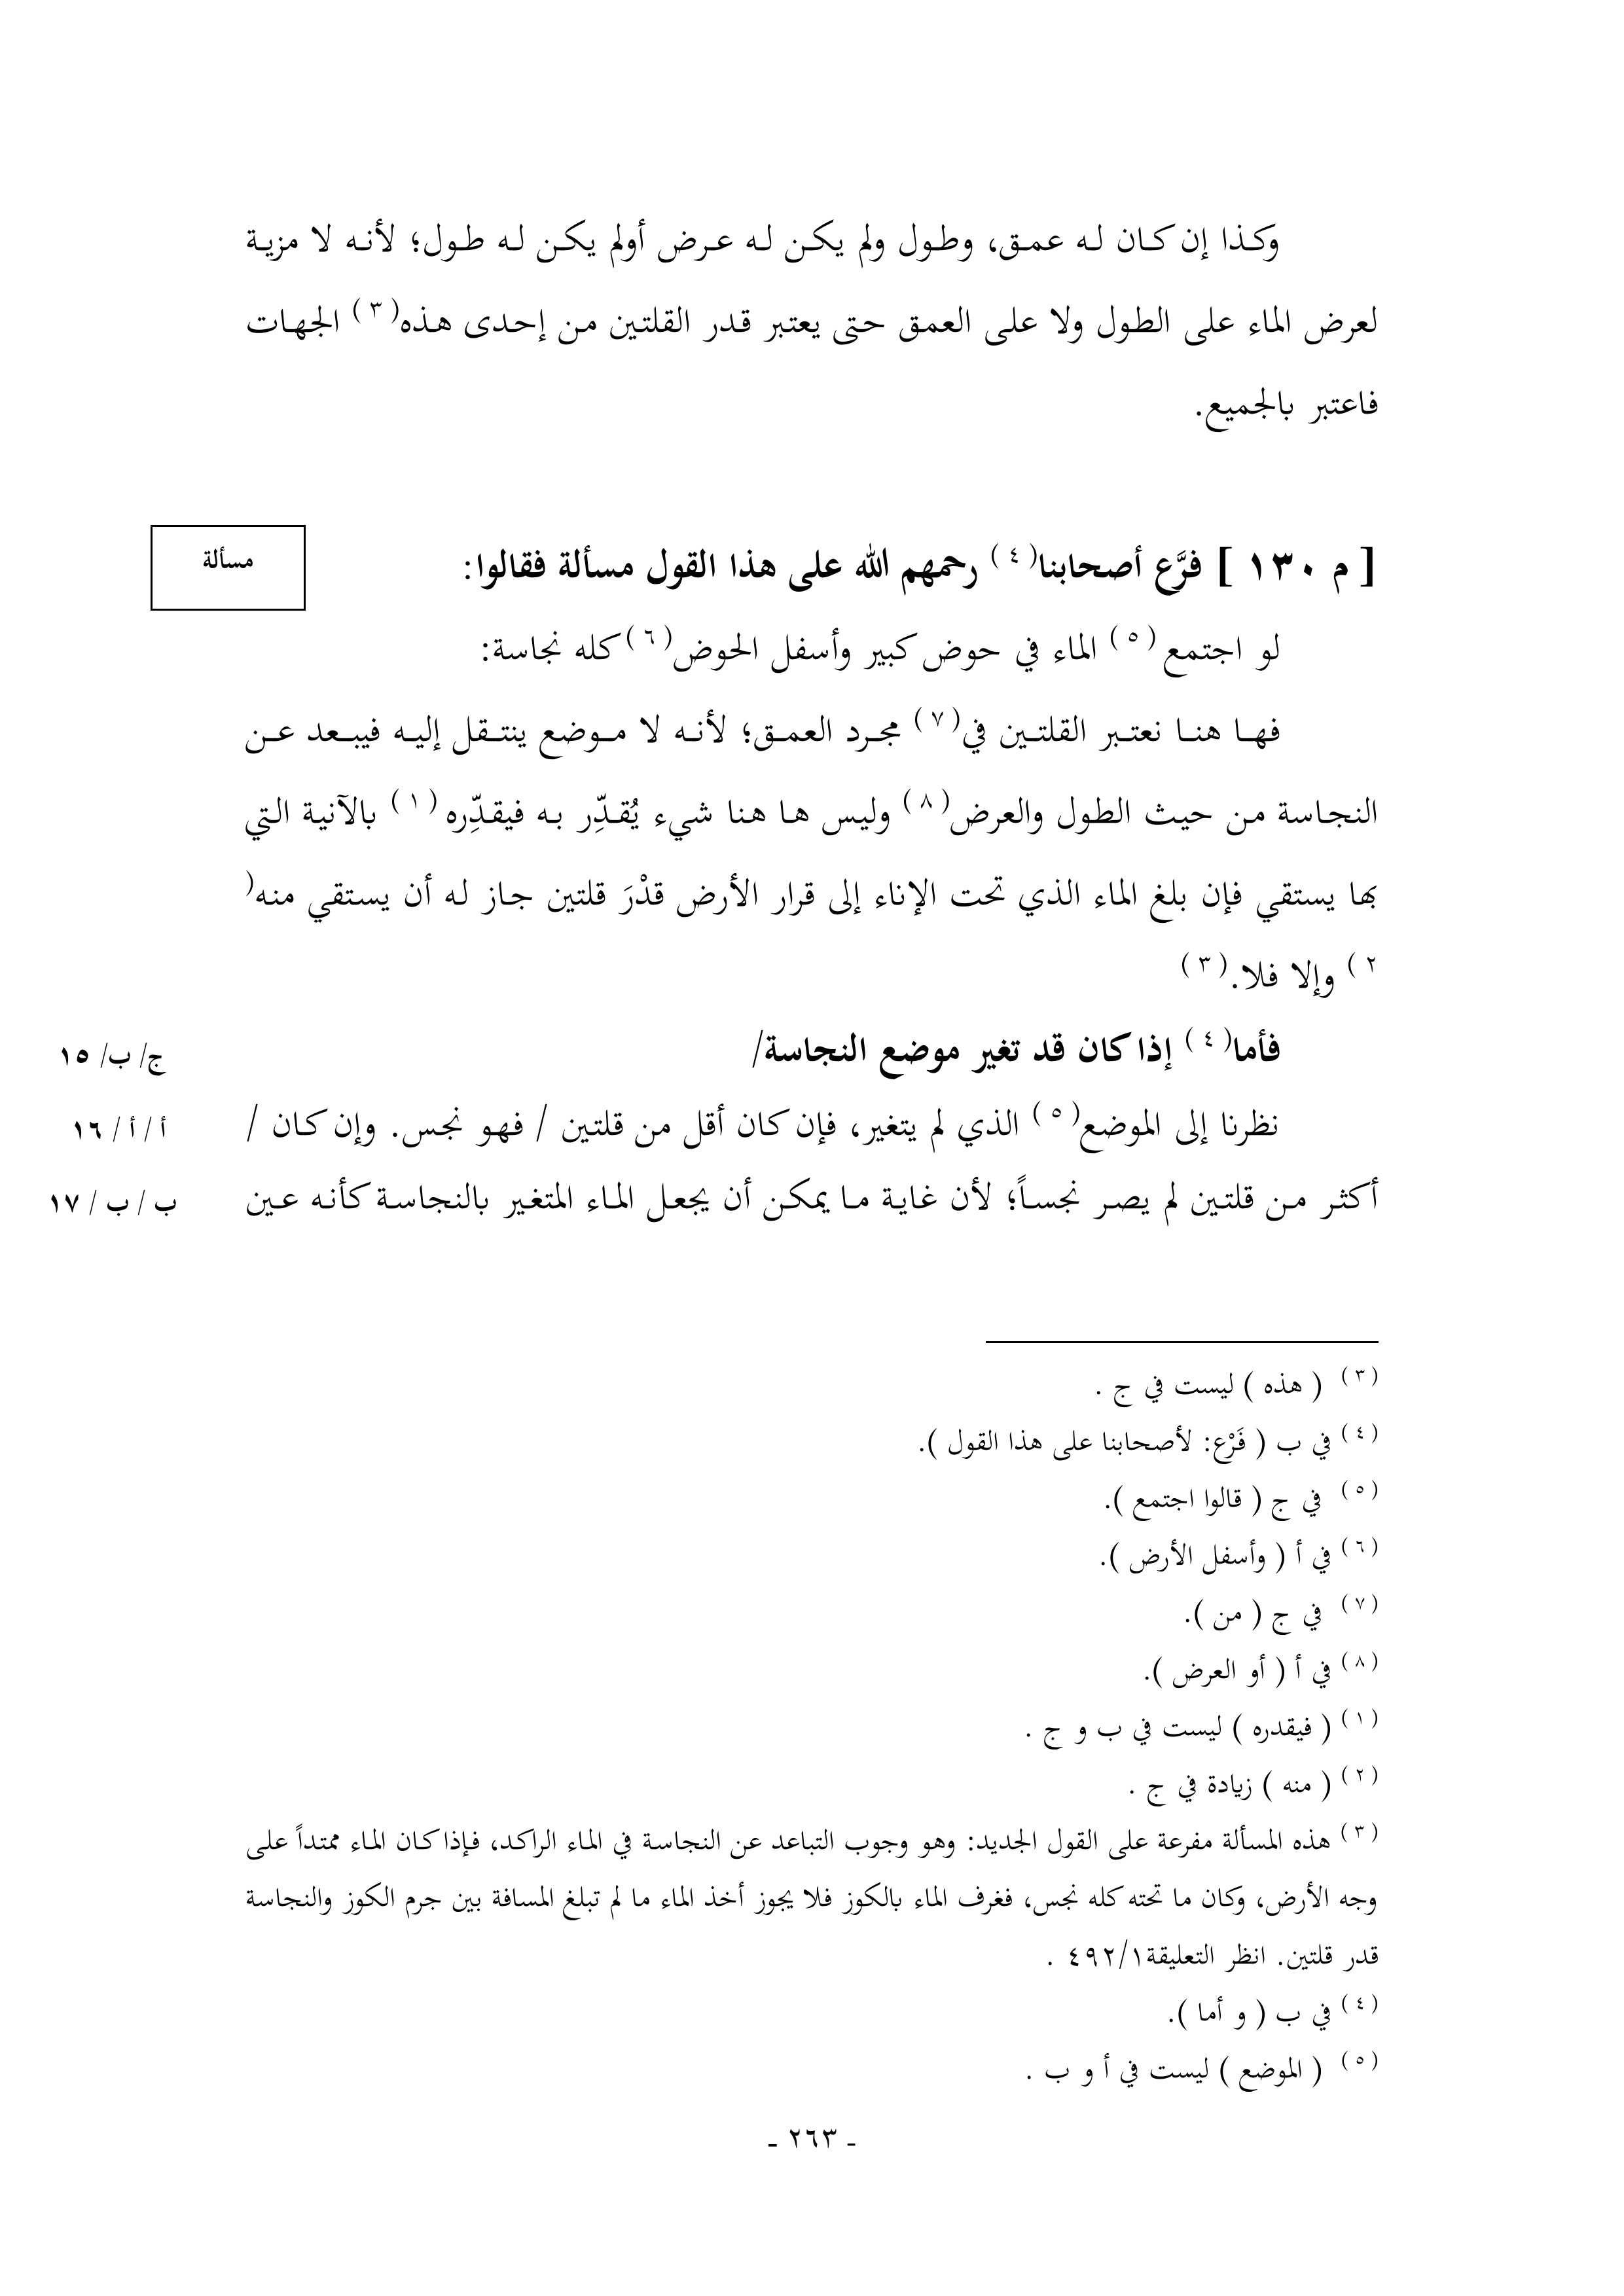 وكذا إن كان له عمق، وطول ولم يكن له عرض أولم يكن له طول؛ لأنه لا مزية
لعرض الماء على الطول ولا على العمق حتى يعتبر قدر القلتين من إحدى هذه(٣) الجهات
فاعتبر بالجميع.
[ م ١٣٠ ] فرَّع أصحابنا(٤) رحمهم الله على هذا القول مسألة فقالوا:
مسألة
لو اجتمع(٥) الماء في حوض كبير وأسفل الحوض(٦) كله نجاسة:
فها هنا نعتبر القلتين في(٧) مجرد العمق؛ لأنه لا موضع ينتقل إليه فيبعد عن
النجاسة من حيث الطول والعرض(٨) وليس ها هنا شيء يُقدِّر به فيقدِّره(١) بالآنية التي
بها يستقي فإن بلغ الماء الذي تحت الإناء إلى قرار الأرض قدْرَ قلتين جاز له أن يستقي منه(
٢) وإلا فلا.(٣)
فأما(٤) إذا كان قد تغير موضع النجاسة/
ج/ ب/ ١٥
نظرنا إلى الموضع(٥) الذي لم يتغير، فإن كان أقل من قلتين / فهو نجس. وإن كان /
أ / أ / ١٦
أكثر من قلتين لم يصر نجساً؛ لأن غاية ما يمكن أن يجعل الماء المتغير بالنجاسة كأنه عين
ب / ب / ١٧
(٣) ( هذه ) ليست في ج .
(٤) في ب ( فَرْع: لأصحابنا على هذا القول ).
(٥) في ج ( قالوا اجتمع ).
(٦) في أ ( وأسفل الأرض ).
(٧) في ج ( من ).
(٨) في أ ( أو العرض ).
(١) ( فيقدره ) ليست في ب و ج .
(٢) ( منه ) زيادة في ج .
(٣) هذه المسألة مفرعة على القول الجديد: وهو وجوب التباعد عن النجاسة في الماء الراكد، فإذا كان الماء ممتداً على
وجه الأرض، وكان ما تحته كله نجس، فغرف الماء بالكوز فلا يجوز أخذ الماء ما لم تبلغ المسافة بين جرم الكوز والنجاسة
قدر قلتين. انظر التعليقة٤٩٢/١ .
(٤) في ب ( و أما ).
(٥) ( الموضع ) ليست في أ و ب .
- ٢٦٣ -